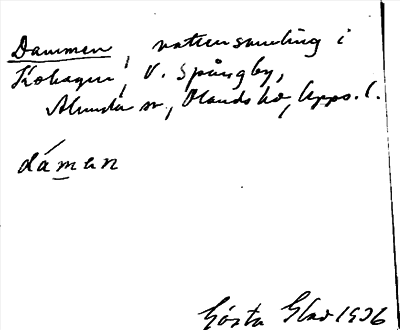 Dammen, vattensamling i
Kohagen, V. Spångby,
Alunda sn, Olands hd, Upps. l.
dámen
Gösta Glad 1936